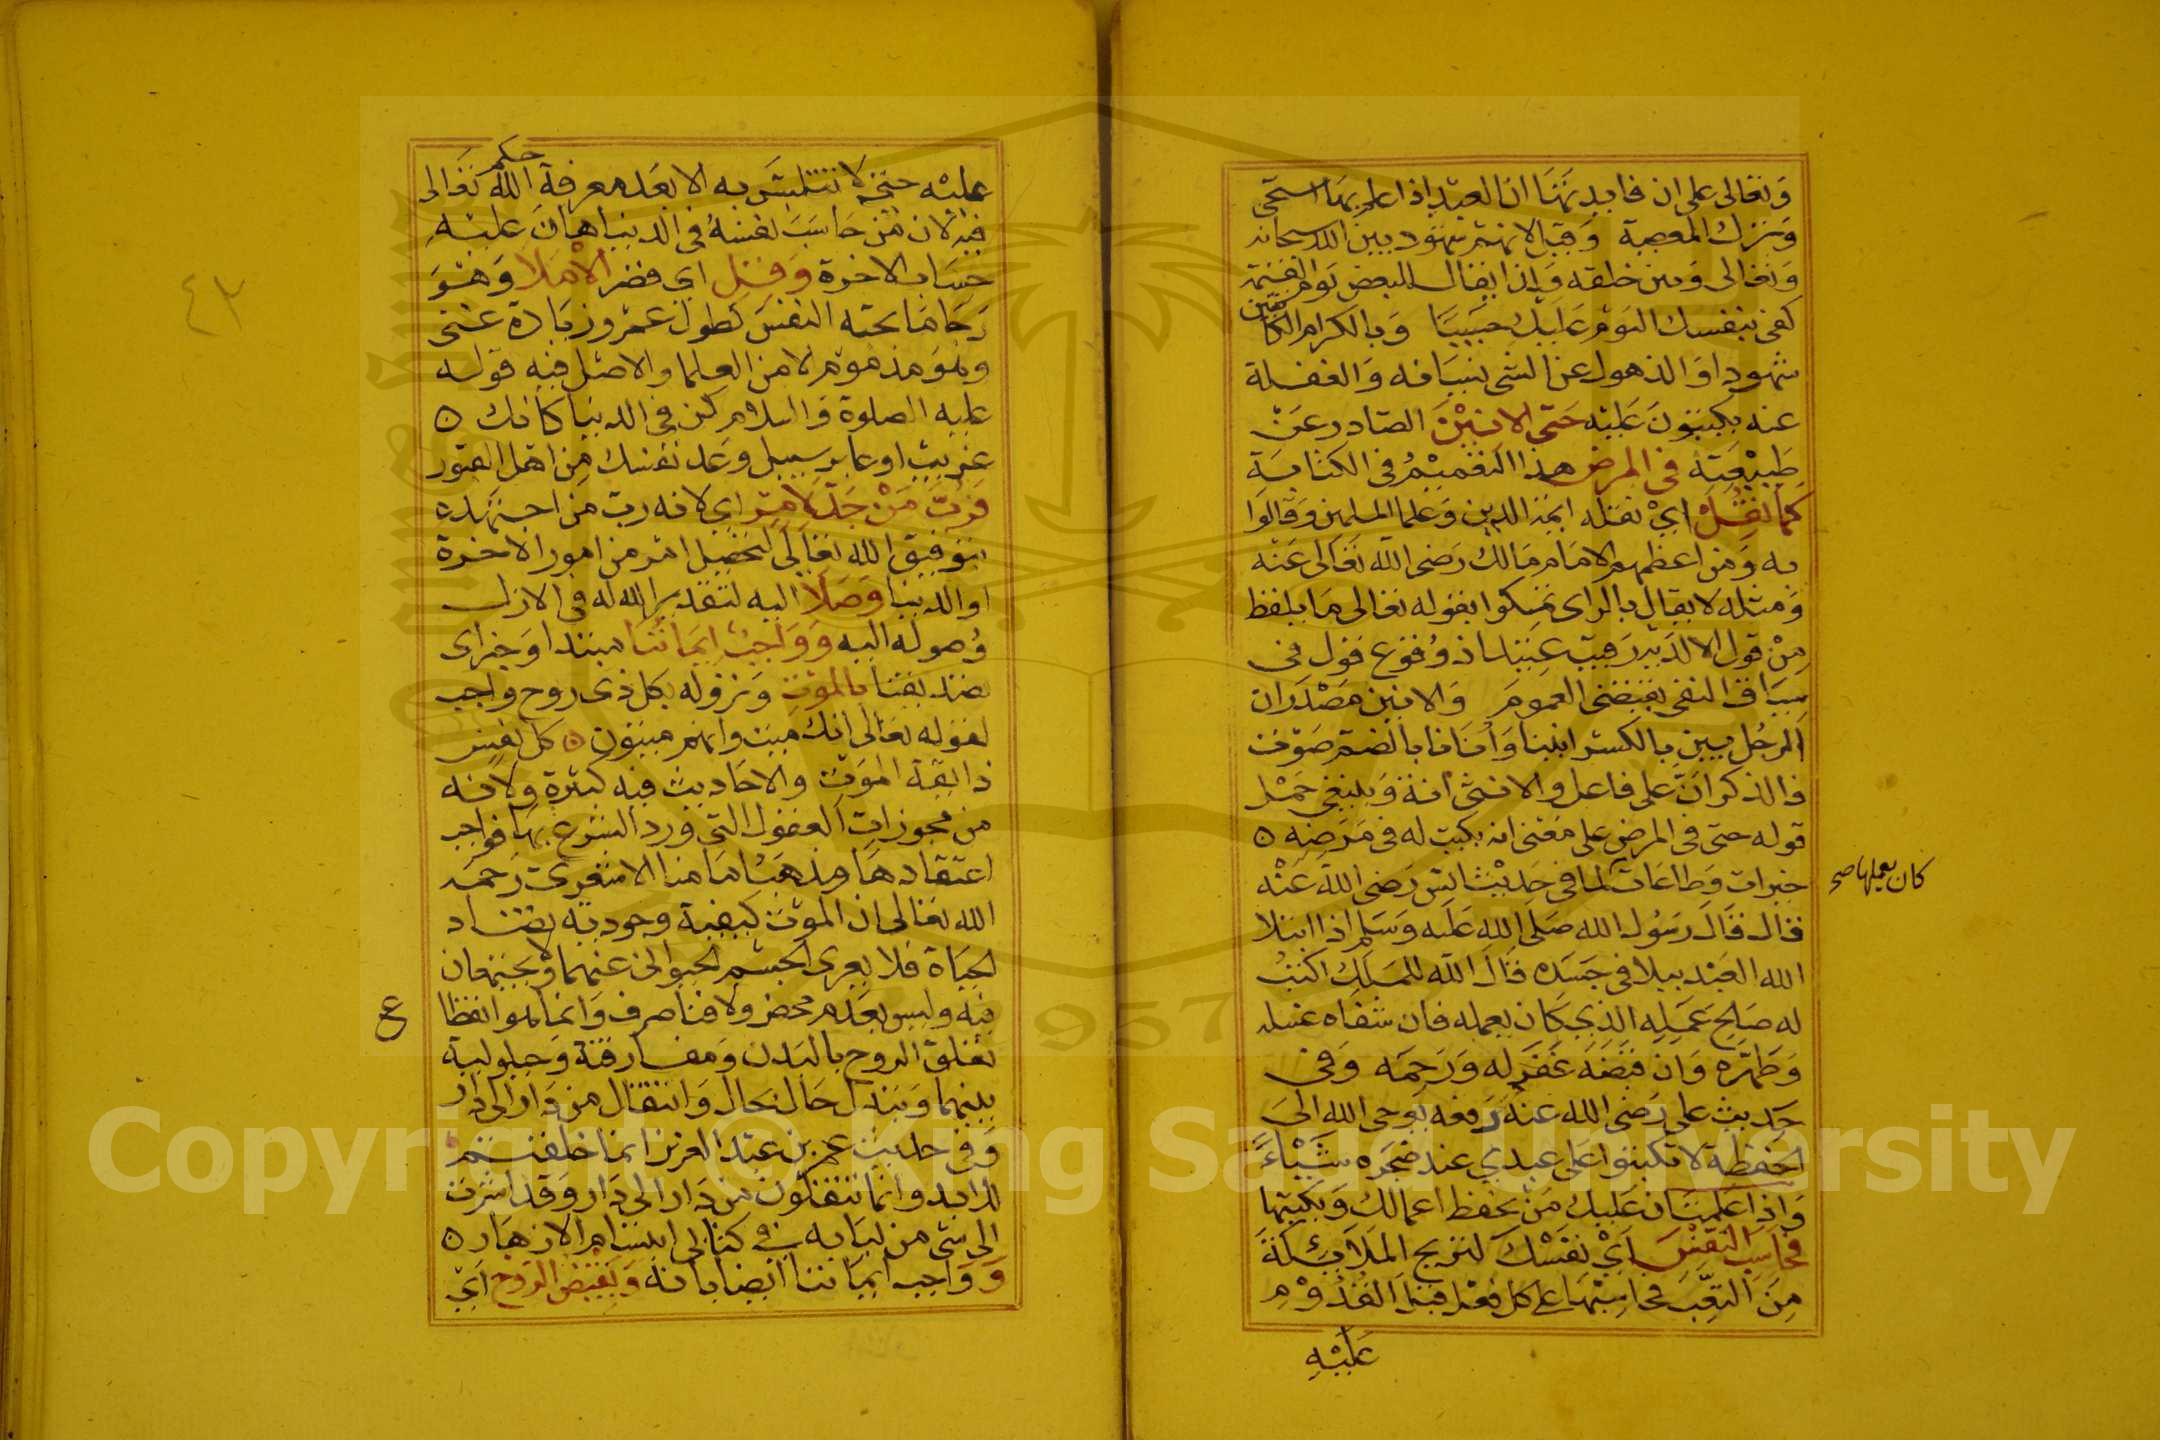 وتعالى على ان فايدتها ان العبد اذا علم بها استحى
وترك المعصية وقيل لانهم شهود بين الله سبحانه
وتعالى وبين خلقه ولذا يقال للبعض يوم القيمة
كفى بنفسك اليوم عليك حسيبا وبالكرام الكاتبين
شهودا والذهول عن الشى نسيانه والغفلة
عنه يكتبون عليه حتى الانين الصادر عن
طبيعته فى المرض هذا التعميم فى الكتابة
كما نقل اي نقله ايمة الدين وعلما المسلمين وقالوا
به ومن اعظمهم الامام مالك رضى الله تعالى عنه
ومثله لا يقال بالراى تمسكوا بقوله تعالى ما يلفظ
من قول الا لديه رقيب عتيد اذ وقوع قول فى
سياق النفى يقتضى العموم والانين مصدر ان
الرجل يين بالكسر انينا وأنانا بالضم صوت
فالذكر ان على فاعل والانثى انة وينبغي حمل
قوله حتى فى المرض على معنى انه يكتب له فى مرضه ه
خيرات وطاعات لما فى حديث انس رضى الله عنه
كان يعملها صح
قال قال رسول الله صلى الله عليه وسلم اذا ابتلا
الله العبد ببلا فى جسده قال الله للملك اكتب
له صالح عمله الذي كان يعمله فان شفاه غسله
وطهره وان قبضه غفر له ورحمه وفى
حديث على رضى الله عنه رفعه يوحى الله الى
الحفظة لا تكتبوا على عبدي عند ضجره شيئاً
واذا علمت ان عليك من يحفظ اعمالك ويكتبها
فحاسب النفس اي نفسك لتريح الملائكة
من التعب فحاسبها على كل فعل قبل القدوم
عليه
عليه حتى لا تتلبس به الا بعد معرفة حكم الله تعالى
فيه لان من حاسب نفسه فى الدنيا هان عليه
حساب الاخرة وقلل اي قصر الأملا وهو
رجا ما تحبه النفس كطول عمر وزيادة غنى
وهو مذموم الا من العلما والاصل فيه قوله
عليه الصلوة والسلام كن فى الدنيا كانك ه
غريب او عابر سبيل وعد نفسك من اهل القبور
فرب من جد لامر اي لانه رب من اجتهد
بتوفيق الله تعالى لتحصيل امر من امور الاخرة
او الدنيا وصلا اليه لتقدير الله له فى الازل
وصوله اليه وواجب ايماننا مبتدا وخبر اى
تصديقنا بالموت ونزوله بكل ذى روح واجب
لقوله تعالى انك ميت وانهم ميتون ه كل نفس
ذايقة الموت والاحاديث فيه كثيرة ولانه
من مجوزات العقول التى ورد الشرع بها فواجب
اعتقادها ومذهب امامنا الاشعرى رحمه
الله تعالى ان الموت كيفية وجودية تضاد
الحياة فلا يعرى الجسم الحيوانى عنهما ولا يجتمعان
فيه وليس بعدم محض ولا فنا صرف وانما هو انقطا
ع
تعلق الروح بالبدن ومفارقة وحيلولة
بينهما وتبدل حال بحال وانتقال من دار الى دار
وفى حديث عمر بن عبد العزيز انما خلقتم
للابد وانما تنتقلون من دار الى دار وقد اشرت
الى شى من لبابه فى كتابى ابتسام الازهار ه
و وواجب ايماننا ايضا بانه ويقبض الروح اي
٤٢
Copyright © King Saud University
1957